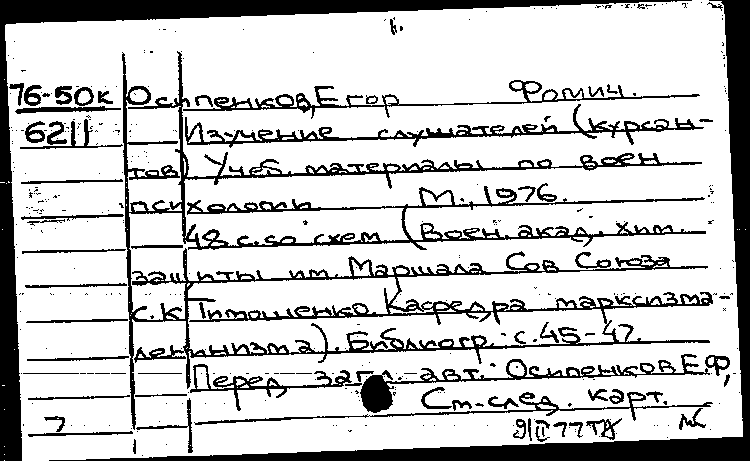 76-50к Осипенков, Егор Фомич.
6211 Изучение слушателей (курсан-
тов) Учеб. материалы по воен
психологии М., 1976.
48 с. со схем (Воен. акад. хим.
защиты им. Маршала Сов Союза
С.К Тимошенко. Кафедра марксизма-
ленинизма). Библиогр.: с. 45-47.
Перед загл. авт.: Осипенков Е.Ф,
См. след. карт.